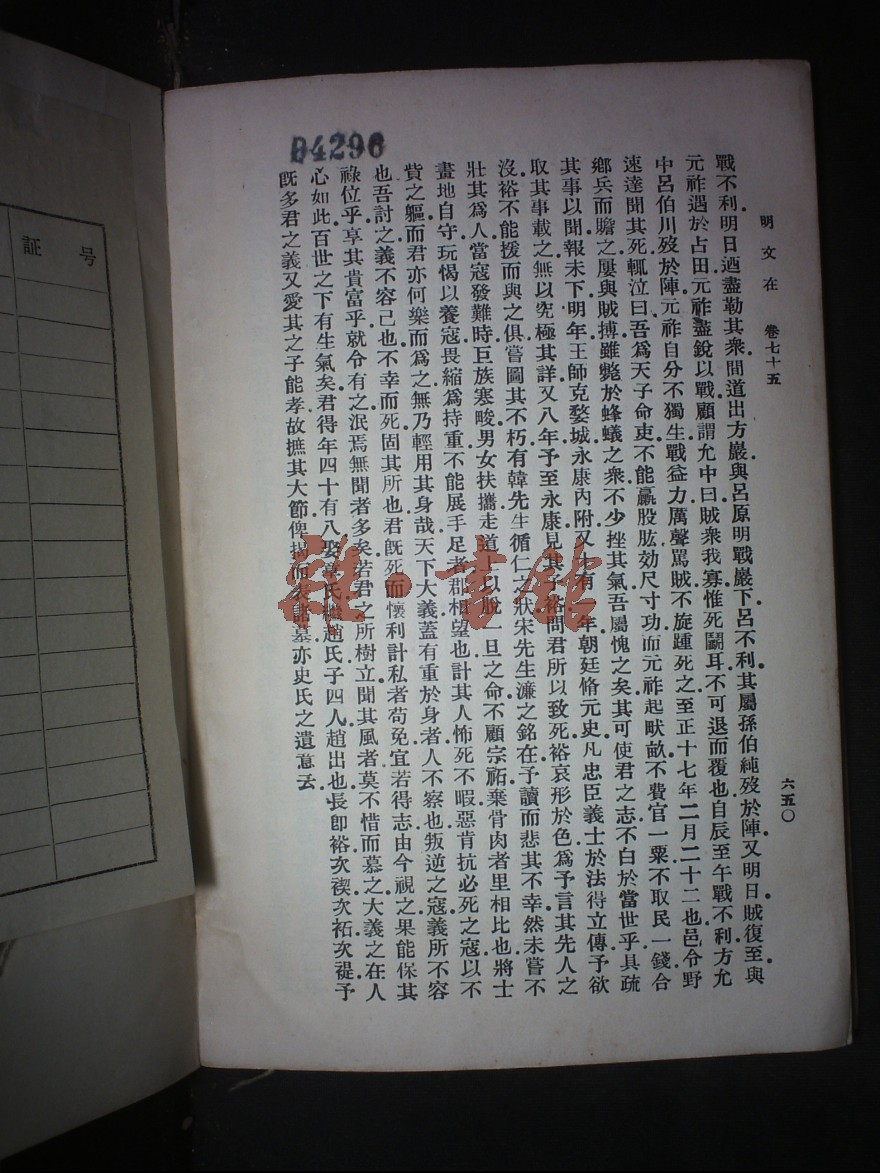 証号
04296
明文在 卷七十五
六五〇
戰不利明日迺盡勒其衆間道出方巖與呂原明戰巖下呂不利其屬孫伯純歿於陣又明日賊復至與
元祚遇於占田元祚盡銳以戰顧謂允中曰賊衆我寡惟死鬭耳不可退而覆也自辰至午戰不利方允
中呂伯川歿於陣元祚自分不獨生戰益力厲聲罵賊不旋踵死之至正十七年二月二十二也邑令野
速達聞其死輒泣曰吾爲天子命吏不能贏股肱効尺寸功而元祚起畎畝不費官一粟不取民一錢合
鄕兵而贍之屢與賊搏雖斃於蜂蟻之衆不少挫其氣吾屬愧之矣其可使君之志不白於當世乎具疏
其事以聞報未下明年王師克婺城永康內附又十有一年朝廷脩元史凡忠臣義士於法得立傳予欲
取其事載之無以究極其詳又八年予至永康見其子裕問君所以致死裕哀形於色爲予言其先人之
沒裕不能援而與之俱嘗圖其不朽有韓先生循仁之狀宋先生濂之銘在予讀而悲其不幸然未嘗不
壯其爲人當寇發難時巨族塞畯男女扶攜走道上以脫一旦之命不顧宗祏棄骨肉者里相比也將士
畫地自守玩愒以養寇畏縮爲持重不能展手足者郡相望也計其人怖死不暇惡肯抗必死之寇以不
貲之軀而君亦何樂而爲之無乃輕用其身哉天下大義蓋有重於身者人不察也叛逆之寇義所不容
也吾討之義不容已也不幸而死固其所也君旣死而懷利計私者苟免宜若得志由今視之果能保其
祿位乎享其貴富乎就令有之泯焉無聞者多矣若君之所樹立聞其風者莫不惜而慕之大義之在人
心如此百世之下有生氣矣君得年四十有八娶章氏繼趙氏子四人趙出也長卽裕次禊次祏次禔予
旣多君之義又愛其之子能孝故摭其大節俾揭而表諸墓亦史氏之遺意云
雜·書館